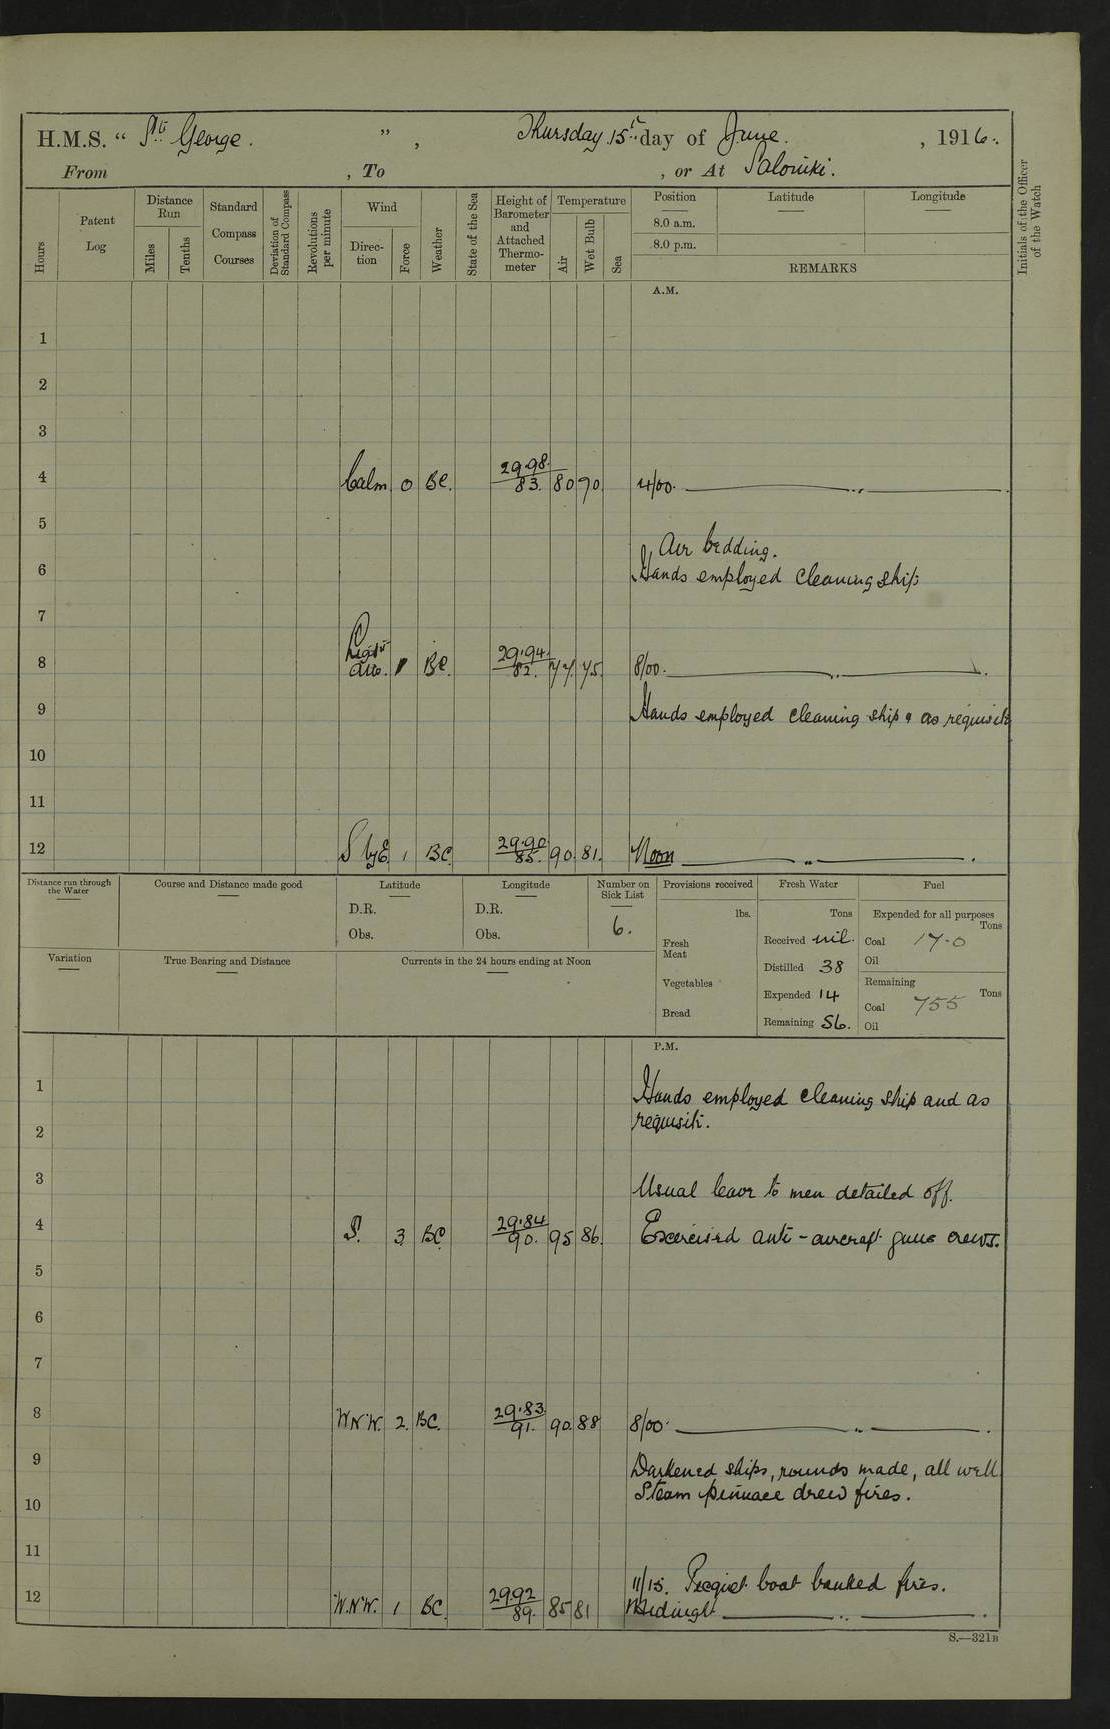 H.M.S. “ St. George. ” , Thursday 15th day of June. , 1916.
From , To , or At Salonuki.
Hours
Patent Log
Distance Run
Miles
Tenths
Standard Compass Courses
Deviation of Standard Compass
Revolutions per minute
Wind
Direc-tion
Force
Weather
State of the Sea
Height of Barometer and Attached Thermo-meter
Temperature
Air
Wet Bulb
Sea
Position
8.0 a.m.
8.0 p.m.
Latitude
Longitude
REMARKS
Initials of the Officer of the Watch
A.M.
1
2
3
4 Calm 0 BC. 29.98 83. 80 70 4/00. ——— „ ———
5
Air bedding.
6 Hands employed cleaning ship
7
8 Light airs. 1 BC. 29.94. 82. 77. 75. 8/00. ——— „ ———.
9 Hands employed cleaning ship & as requisite
10
11
12 S by E 1 BC. 29.90 85. 90. 81. Noon ——— „ ———.
Distance run through the Water
Course and Distance made good
Latitude
D.R.
Obs.
Longitude
D.R.
Obs.
Number on Sick List
6.
Provisions received
lbs.
Fresh Meat
Vegetables
Bread
Fresh Water
Tons
Received nil.
Distilled 38
Expended 14
Remaining 56.
Fuel
Expended for all purposes
Tons
Coal 17.0
Oil
Remaining
Tons
Coal 755
Oil
Variation
True Bearing and Distance
Currents in the 24 hours ending at Noon
P.M.
1 Hands employed cleaning ship and as
2 requisite.
3 Usual leave to men detailed off.
4 S. 3 BC. 29.84 90. 95 86. Excercised anti-aircraft guns crews.
5
6
7
8 W N W. 2. BC. 29.83. 91. 90. 88 8/00. ——— „ ———.
9 Darkened ships, rounds made, all well
10 Steam pinnace drew fires.
11
11/15. Picquet boat banked fires.
12 W.N.W. 1 BC. 29.92 89. 85 81 Midnight ——— „ ———.
S.—321B